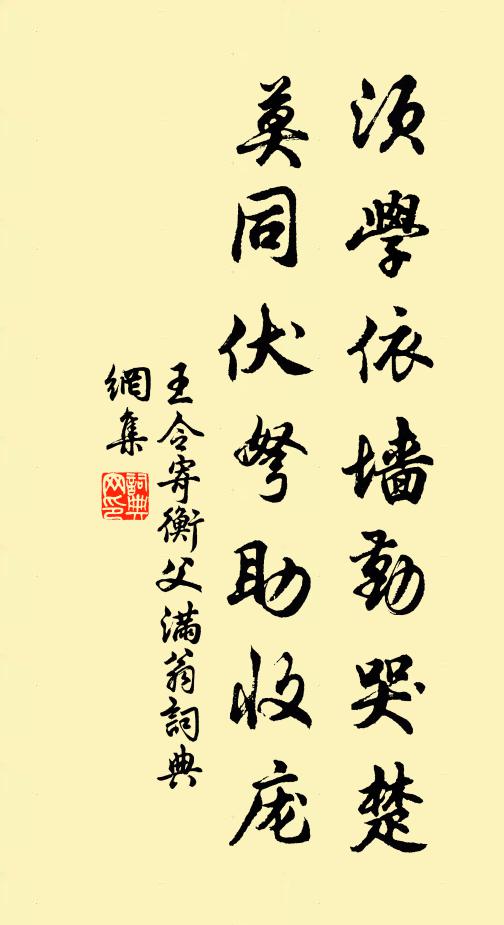 须學依墙勤哭楚
莫同伏弩助收庞
王令寄衡父满翁詞典
網集
詞典
网印